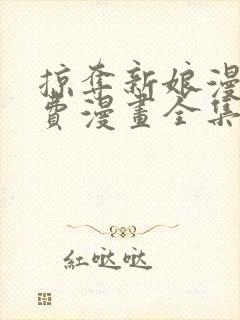 掠奪新娘漫
費漫畫全集
紅噠噠